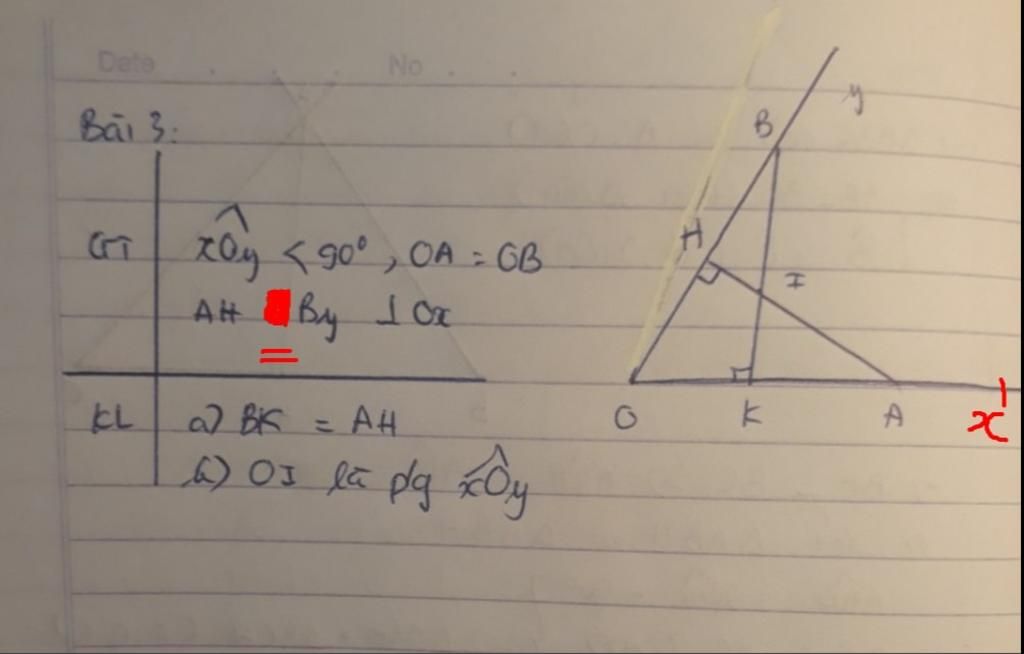 Date No
Bài 3:
GT xÔy < 90°, OA = OB
AH By ⊥ Ox
KL a) BK = AH
b) OI là p/g xÔy
y
B
H
I
O K A x